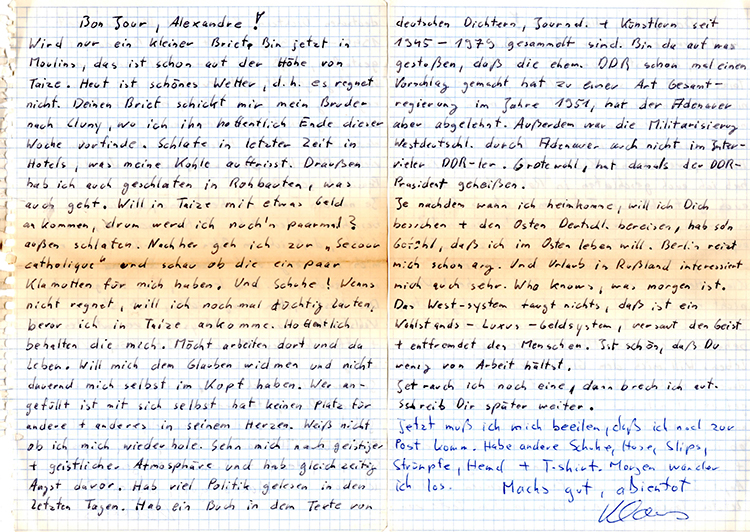 Bon Jour, Alexandre!
Wird nur ein kleiner Brief. Bin jetzt in
Moulins, das ist schon auf der Höhe von
Taize. Heut ist schönes Wetter, d.h. es regnet
nicht. Deinen Brief schickt mir mein Bruder
nach Cluny, wo ich ihn hoffentlich Ende dieser
Woche vorfinde. Schlafe in letzter Zeit in
Hotels, was meine Kohle auffrisst. Draußen
hab ich auch geschlafen in Rohbauten, was
auch geht. Will in Taize mit etwas Geld
ankommen, drum werd ich noch'n paarmal
außen schlafen. Nachher geh ich zur "Secour
catholique" und schau ob die ein paar
Klamotten für mich haben. Und Schuhe! Wenns
nicht regnet, will ich nochmal tüchtig laufen,
bevor ich in Taize ankomme. Hoffentlich
behalten die mich. Möcht arbeiten dort und da
leben. Will mich dem Glauben widmen und nicht
dauernd mich selbst im Kopf haben. Wer an-
gefüllt ist mit sich selbst hat keinen Platz für
andere + anderes in seinem Herzen. Weiß nicht
ob ich mich wiederhole. Sehn mich nach geistiger
+ geistlicher Atmosphäre und hab gleichzeitig
Angst davor. Hab viel Politik gelesen in den
letzten Tagen. Hab ein Buch in dem Texte von
deutschen Dichtern, Journal. + Künstlern seit
1945 - 1979 gesammelt sind. Bin da auf was
gestoßen, daß die ehem. DDR schon mal einen
Vorschlag gemacht hat zu einer Art Gesamt-
regierung im Jahre 1951, hat der Adenauer
aber abgelehnt. Außerdem war die Militarisierung
Westdeutschl. durch Adenauer auch nicht im Inter-
vieler DDR-ler. Grotewohl, hat damals der DDR-
Präsident geheißen.
Je nachdem wann ich heimkomme, will ich Dich
besuchen + den Osten Deutschl. bereisen, hab so'n
Gefühl, daß ich im Osten leben will. Berlin reizt
mich schon arg. Und Urlaub in Rußland interessiert
mich auch sehr. Who knows, was morgen ist.
Das West-system taugt nichts, daß ist ein
Wohlstands-Luxus-Geldsystem, versaut den Geist
+ entfremdet den Menschen. Ist schön, daß Du
wenig von Arbeit hältst.
Jet rauch ich noch eine, dann brech ich auf.
Schreib Dir später weiter.
Jetzt muß ich mich beeilen, daß ich noch zur
Post komm. Habe andere Schuhe, Hose, Slips,
Strümpfe, Hemd + T-shirt. Morgen wander
ich los. Machs gut, aBientot
Klaus